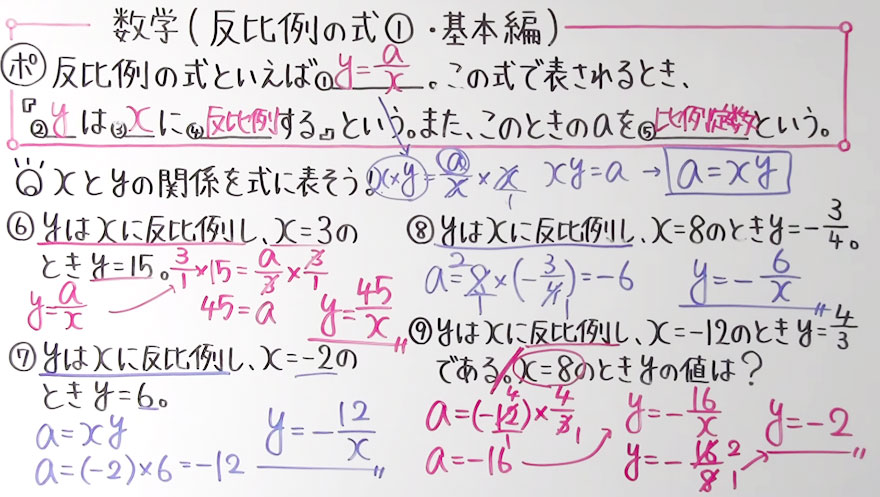 数学(反比例の式①・基本編)
ポ 反比例の式といえば① y=a/x 。この式で表されるとき、
『② y は③ x に④ 反比例 する』という。また、このときのaを⑤ 比例定数 という。
xとyの関係を式に表そう! x×y=a/x×x/1 xy=a → a=xy
⑥ yはxに反比例し、x=3の
ときy=15。 3/1×15=a/3×3/1
y=a/x 45=a y=45/x
⑦ yはxに反比例し、x=-2の
ときy=6。
a=xy
a=(-2)×6=-12 y=-12/x
⑧ yはxに反比例し、x=8のときy=-3/4。
a=8×(-3/4)=-6 y=-6/x
2 1 1
⑨ yはxに反比例し、x=-12のときy=4/3
である。x=8のときyの値は?
a=(-12)×4/3 y=-16/x y=-2
4 1 1
a=-16 y=-16/8 2 1